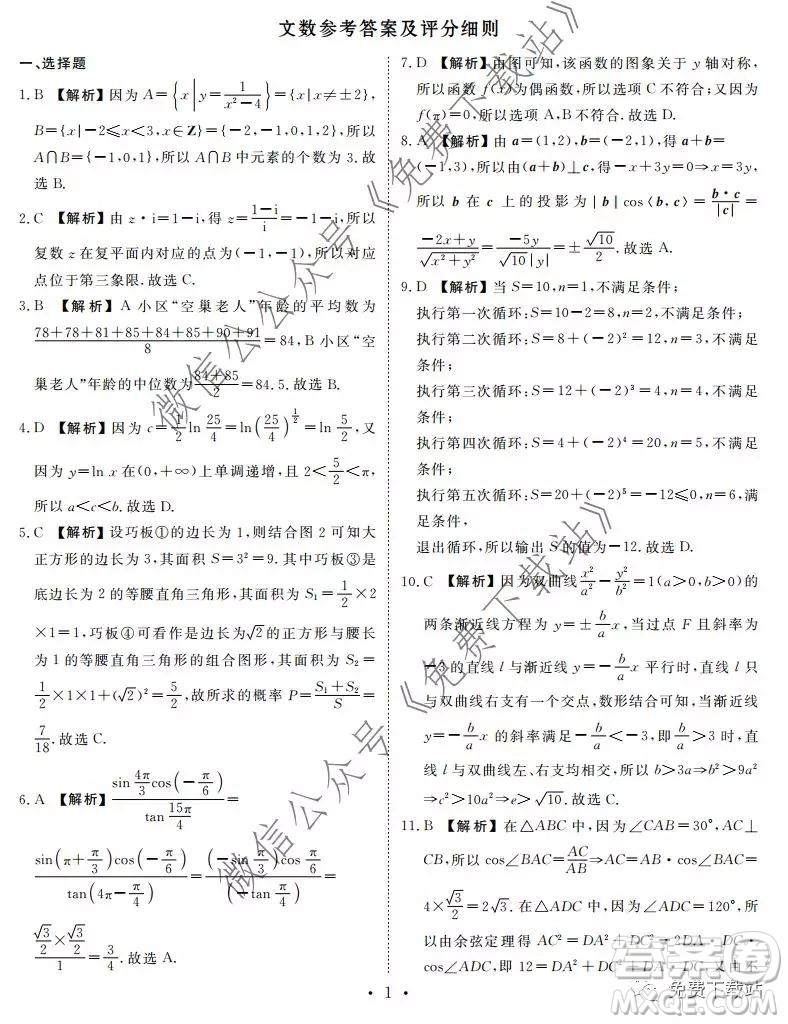 文数参考答案及评分细则
一、选择题
1.B 【解析】因为 A={x|y=1/(x²-4)}={x|x≠±2},
B={x|-2≤x<3,x∈Z}={-2,-1,0,1,2},所以
A∩B={-1,0,1},所以 A∩B 中元素的个数为 3.故
选 B.
2.C 【解析】由 z·i=1-i,得 z=(1-i)/i=-1-i,所以
复数 z 在复平面内对应的点为(-1,-1),所以对应
点位于第三象限.故选 C.
3.B 【解析】A 小区“空巢老人”年龄的平均数为
(78+78+81+85+84+85+90+91)/8=84,B 小区“空
巢老人”年龄的中位数为(84+85)/2=84.5.故选 B.
4.D 【解析】因为 c=1/2 ln 25/4=ln(25/4)^(1/2)=ln 5/2,又
因为 y=ln x 在(0,+∞)上单调递增,且 2<5/2<π,
所以 a<c<b.故选 D.
5.C 【解析】设巧板①的边长为 1,则结合图 2 可知大
正方形的边长为 3,其面积 S=3²=9.其中巧板③是
底边长为 2 的等腰直角三角形,其面积为 S₁=1/2×2
×1=1,巧板④可看作是边长为√2的正方形与腰长
为 1 的等腰直角三角形的组合图形,其面积 S₂=
1/2×1×1+(√2)²=5/2,故所求的概率 P=(S₁+S₂)/S=
7/18.故选 C.
6.A 【解析】(sin 4π/3 cos(-π/6))/(tan 15π/4)=
(sin(π+π/3)cos(-π/6))/(tan(4π-π/4))=((-sin π/3)cos(-π/6))/(-tan π/4)=
(√3/2×√3/2)/1=3/4.故选 A.
7.D 【解析】由图可知,该函数的图象关于 y 轴对称,
所以函数 f(x)为偶函数,所以选项 C 不符合;又因为
f(π)=0,所以选项 A,B 不符合.故选 D.
8.A 【解析】由 a=(1,2),b=(-2,1),得 a+b=
(-1,3),所以由(a+b)⊥c,得-x+3y=0⇒x=3y,
所以 b 在 c 上的投影为 |b|cos⟨b,c⟩=(b·c)/|c|=
(-2x+y)/√(x²+y²)=(-5y)/(√10|y|)=±√10/2.故选 A.
9.D 【解析】当 S=10,n=1,不满足条件;
执行第一次循环:S=10-2=8,n=2,不满足条件;
执行第二次循环:S=8+(-2)²=12,n=3,不满足
条件;
执行第三次循环:S=12+(-2)³=4,n=4,不满足
条件;
执行第四次循环:S=4+(-2)⁴=20,n=5,不满足
条件;
执行第五次循环:S=20+(-2)⁵=-12≤0,n=6,满足
条件,
退出循环,所以输出 S 的值为-12.故选 D.
10.C 【解析】因为双曲线x²/a²-y²/b²=1(a>0,b>0)的
两条渐近线方程为 y=±b/a x,当过点 F 且斜率为
-3 的直线 l 与渐近线 y=-b/a x 平行时,直线 l 只
与双曲线右支有一个交点,数形结合可知,当渐近线
y=-b/a x 的斜率满足-b/a<-3,即b/a>3 时,直
线 l 与双曲线左、右支均相交,所以 b>3a⇒b²>9a²
⇒c²>10a²⇒e>√10.故选 C.
11.B 【解析】在△ABC 中,因为∠CAB=30°,AC⊥
CB,所以 cos∠BAC=AC/AB⇒AC=AB·cos∠BAC=
4×√3/2=2√3.在△ADC 中,因为∠ADC=120°,所
以由余弦定理得 AC²=DA²+DC²-2DA·DC·
cos∠ADC,即 12=DA²+DC²+DA·DC.又由不
• 1 •
微信公众号《免费下载站》
微信公众号《免费下载站》
答案圈
MXQE.COM
免费下载站